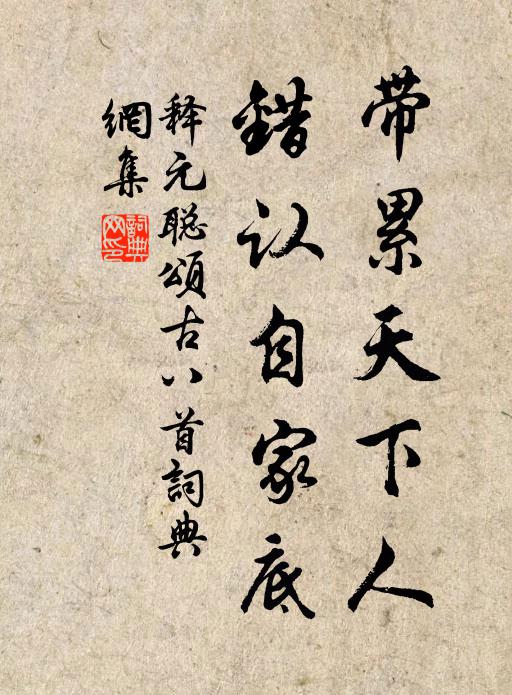 带累天下人
錯认自家底
释元聪頌古八首詞典
網集
詞典
网印